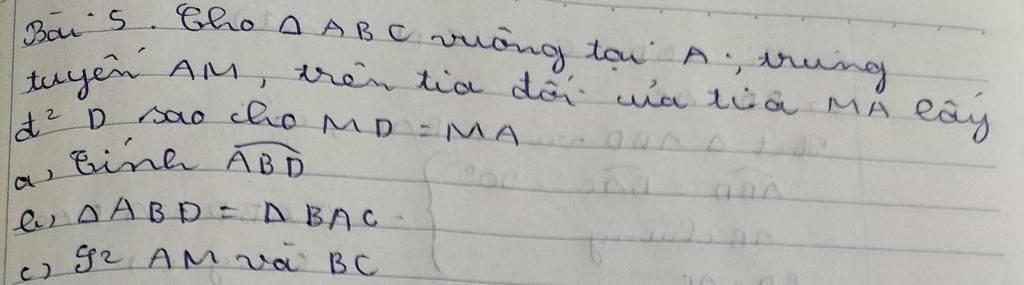 Bài 5. Cho Δ ABC vuông tại A, trung
tuyến AM, trên tia đối của tia MA lấy
đ² D sao cho MD = MA
a, Tính ABD
b, Δ ABD = Δ BAC
c) S² AM và BC